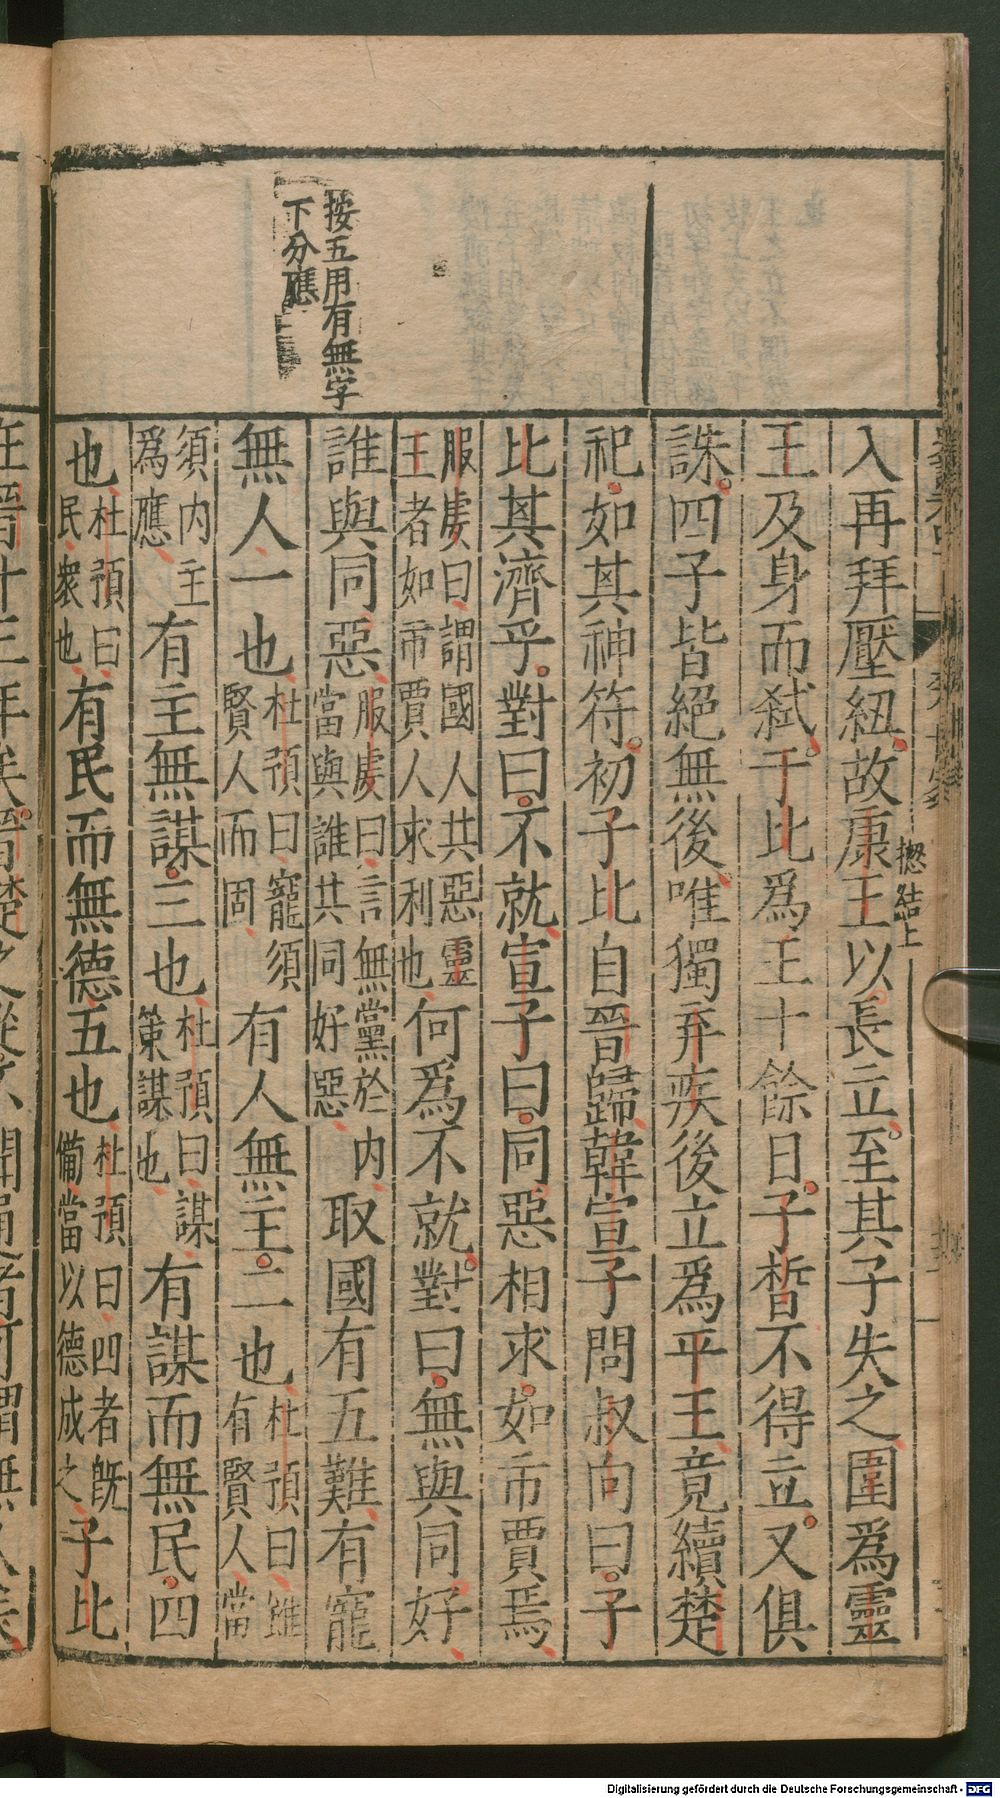 入再拜壓紐故康王以長立至其子失之圍爲靈
王及身而弑子比爲王十餘日子晳不得立又俱
誅四子皆絕無後唯獨弃疾後立爲平王竟續楚
祀如其神符初子比自晉歸韓宣子問叔向曰子
比其濟乎對曰不就宣子曰同惡相求如市賈焉
服虔曰謂國人共惡靈
王者如市賈人求利也
何爲不就對曰無與同好
誰與同惡
服虔曰言無黨於內
當與誰共同好惡
取國有五難有寵
無人一也
杜預曰寵須
賢人而固
有人無主二也
杜預曰雖
有賢人當
須內主
爲應
有主無謀三也
杜預曰謀
策謀也
有謀而無民四
也
杜預曰
民衆也
有民而無德五也
杜預曰四者旣
備當以德成之
子比
按五用有無字
下分應
揔結上
Digitalisierung gefördert durch die Deutsche Forschungsgemeinschaft - DFG